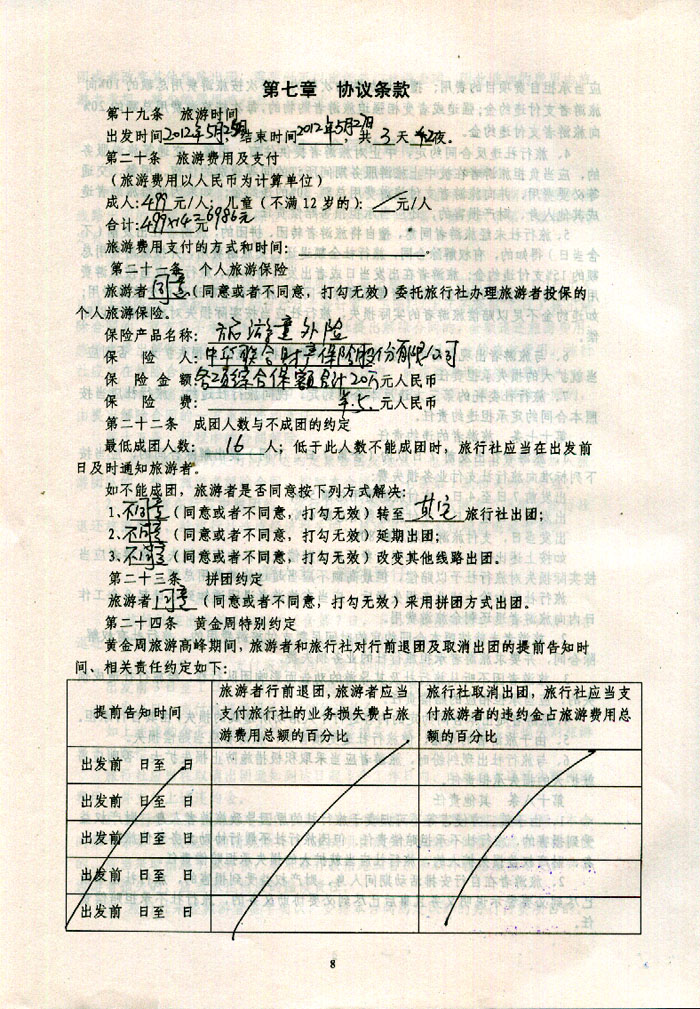 第七章 协议条款
第十九条 旅游时间
出发时间2012年5月25日，结束时间2012年5月27日，共3天2夜。
第二十条 旅游费用及支付
（旅游费用以人民币为计算单位）
成人：499元/人；儿童（不满12岁的）：/元/人
合计：499×14=6986元
旅游费用支付的方式和时间：
第二十一条 个人旅游保险
旅游者同意（同意或者不同意，打勾无效）委托旅行社办理旅游者投保的
个人旅游保险。
保险产品名称：旅游意外险
保 险 人：中华联合财产保险股份有限公司
保 险 金 额：各项综合保额合计20万元人民币
保 险 费：元人民币
第二十二条 成团人数与不成团的约定
最低成团人数：16人；低于此人数不能成团时，旅行社应当在出发前
日及时通知旅游者。
如不能成团，旅游者是否同意按下列方式解决：
1、不同意（同意或者不同意，打勾无效）转至其它旅行社出团；
2、不同意（同意或者不同意，打勾无效）延期出团；
3、不同意（同意或者不同意，打勾无效）改变其他线路出团。
第二十三条 拼团约定
旅游者同意（同意或者不同意，打勾无效）采用拼团方式出团。
第二十四条 黄金周特别约定
黄金周旅游高峰期间，旅游者和旅行社对行前退团及取消出团的提前告知时
间、相关责任约定如下：
提前告知时间
旅游者行前退团，旅游者应当
支付旅行社的业务损失费占旅
游费用总额的百分比
旅行社取消出团，旅行社应当支
付旅游者的违约金占旅游费用总
额的百分比
出发前 日至 日
出发前 日至 日
出发前 日至 日
出发前 日至 日
出发前 日至 日
8